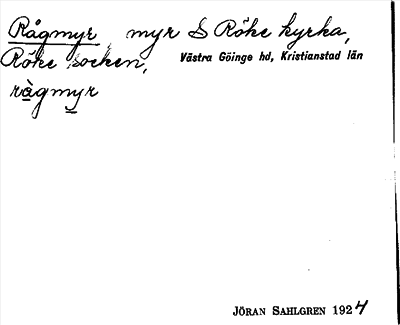 Rågmyr myr S Röke kyrka,
Röke socken, Västra Göinge hd, Kristianstad län
rågmyr
JÖRAN SAHLGREN 1924